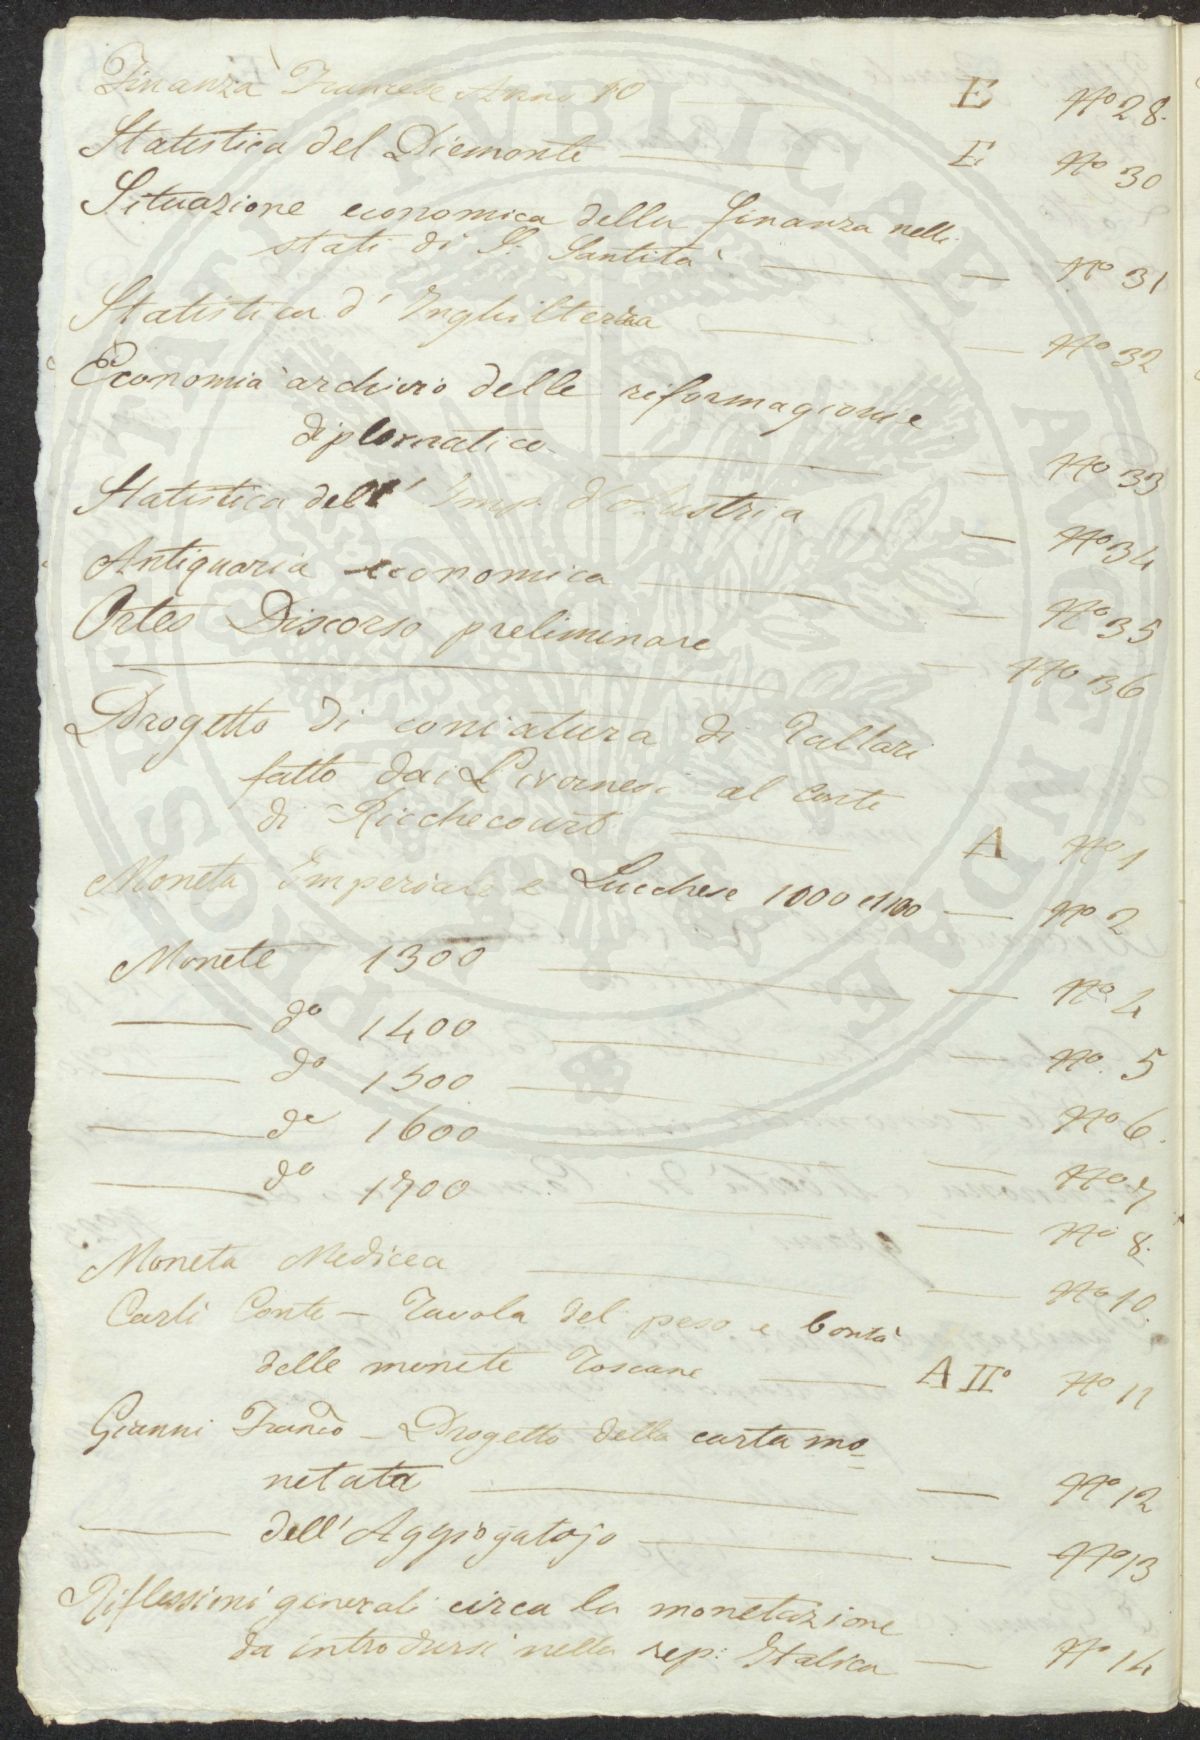 Finanza Francese Anno 10 — E Nº 28.
Statistica del Piemonte — E Nº 30
Situazione economica della finanza nelli
stati di S. Santità — — Nº 31
Statistica d'Inghilterra — — Nº 32
Economia archivio delle riformagioni e
diplomatico. — — Nº 33
Statistica dell' Imp. d'Austria — Nº 34
Antiquaria economica — — Nº 35
Ortes Discorso preliminare — Nº 36
Progetto di coniatura di Tallari
fatto dai Livornesi al Conte
di Ricchecourt — A Nº 1
Moneta Imperiale e Lucchese 1000 e 1100 — Nº 2
Monete 1300 — — Nº 4
— dº 1400 — — Nº 5
— dº 1500 — — Nº 6.
— dº 1600 — — Nº 7
— dº 1700 — — Nº 8.
Moneta Medicea — — Nº 10.
Carli Conte — Tavola del peso e bontà
delle monete Toscane — A IIº Nº 11
Gianni Franco — Progetto della carta mo=
netata — — Nº 12
— dell'Aggiogatojo — — Nº 13
Riflessioni generali circa la monetazione
da introdursi nella rep: Italica — Nº 14
PROSPERITATI PVBLICAE AVGENDAE